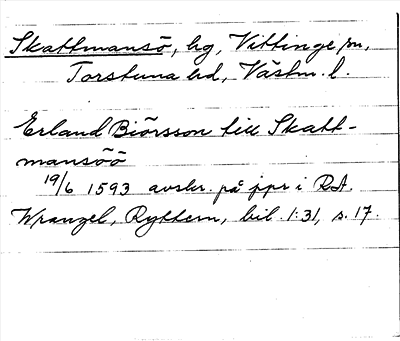 Skattmansö, hg, Vittinge sn,
Torstuna hd, Västm. l.
Erland Biörsson till Skatt-
mansöö
19/6 1593 avskr. på ppr i RA.
Wrangel, Ryttern, bil. 1:31, s. 17.